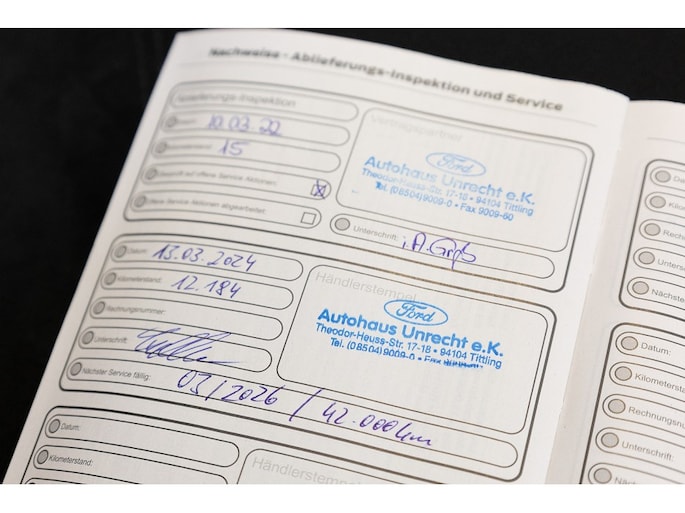 Nachweise - Ablieferungs-Inspektion und Service
Ablieferungs-Inspektion
Datum: 10.03.22
Kilometerstand: 15
Geprüft auf offene Service Aktionen:
Offene Service Aktionen abgearbeitet:
Vertragspartner
Ford
Autohaus Unrecht e.K.
Theodor-Heuss-Str. 17-18 • 94104 Tittling
Tel. (08504) 9009-0 • Fax 9009-60
Unterschrift: i.A.
Datum: 13.03.2024
Kilometerstand: 12.184
Rechnungsnummer:
Unterschrift:
Nächster Service fällig: 03/2026 / 42.000km
Händlerstempel
Ford
Autohaus Unrecht e.K.
Theodor-Heuss-Str. 17-18 • 94104 Tittling
Tel. (08504) 9009-0 • Fax
Datum:
Kilometerstand:
Händlerstempel
Da
Kilo
Rech
Unters
Nächst
Datum:
Kilometerstan
Rechnungsnu
Unterschrift:
Nächste